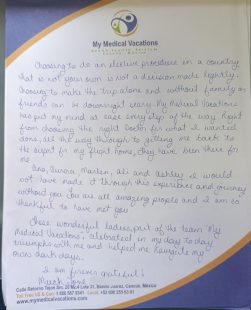 My Medical Vacations
Choosing to do an elective procedure in a country
that is not your own is not a decision made lightly.
Choosing to make the trip alone and without family or
friends can be downright scary. My Medical Vacations
has put my mind at ease every step of the way. Right
from choosing the right Doctor for what I wanted
done, all the way through to getting me back to
the airport for my flight home, they have been there for
me.
Ana, Aurora, Marlen, Ali and Ashley I would
not have made it through this experience and journey
without you. You are all amazing people and I am so
thankful to have met you!
These wonderful ladies, part of the team My
Medical Vacations, celebrated in my day to day
triumphs with me and helped me navigate my
more dark days.
I am forever grateful!
Much love
Toll Free US & Can
www.mymedicalvacations.com